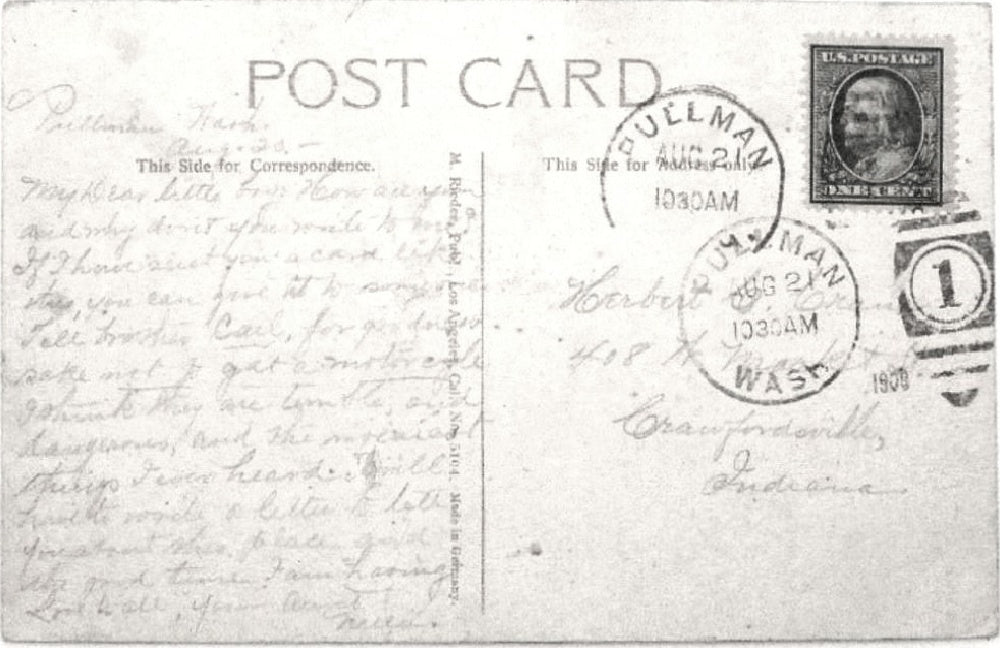 POST CARD
Pullman Wash.
Aug. 20. –
This Side for Correspondence.
My Dear little boy: How are you
and why don't you write to me?
If I have sent you a card like
this, you can give it to someone
Tell brother Carl, for goodness
sake not to get a motorcycle
I think they are terrible, and
dangerous, and the noisiest
things I ever heard. I will
have to write a letter to tell
you about this place and
the good time I am having
Love to all, your Aunt
M. Rieder, Publ., Los Angeles, Cal. No. 5104. Made in Germany.
This Side for Address only.
U.S. POSTAGE
ONE CENT
PULLMAN
AUG 21
1030AM
PULLMAN
AUG 21
1030AM
WASH
1
1909
Herbert
408 W. Market
Crawfordsville,
Indiana.